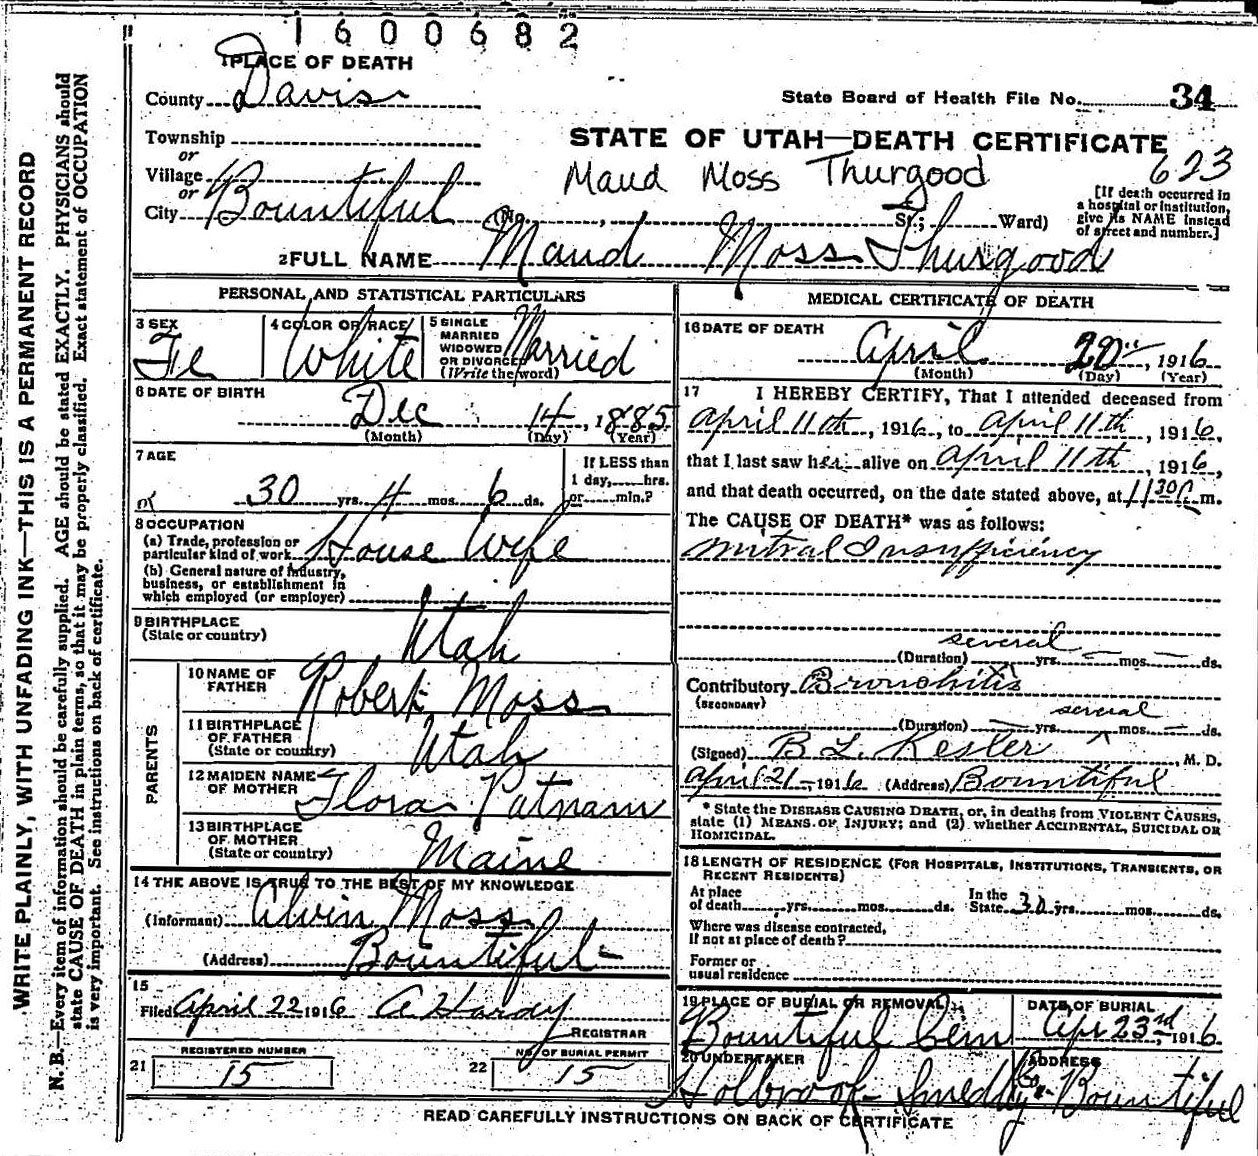 1600682
1 PLACE OF DEATH
County Davis
State Board of Health File No. 34
Township
or
Village
or
City Bountiful (No. , St.; Ward)
STATE OF UTAH—DEATH CERTIFICATE
623
Maud Moss Thurgood
[If death occurred in
a hospital or institution,
give its NAME instead
of street and number.]
2 FULL NAME Maud Moss Thurgood
PERSONAL AND STATISTICAL PARTICULARS
3 SEX Fe
4 COLOR OR RACE White
5 SINGLE
MARRIED
WIDOWED
OR DIVORCED
(Write the word) Married
6 DATE OF BIRTH
Dec 14, 1885
(Month) (Day) (Year)
7 AGE
30 yrs. 4 mos. 6 ds.
If LESS than
1 day,......hrs.
or......min.?
8 OCCUPATION
(a) Trade, profession or
particular kind of work House Wife
(b) General nature of industry,
business, or establishment in
which employed (or employer)
9 BIRTHPLACE
(State or country) Utah
PARENTS
10 NAME OF
FATHER Robert Moss
11 BIRTHPLACE
OF FATHER
(State or country) Utah
12 MAIDEN NAME
OF MOTHER Flora Putnam
13 BIRTHPLACE
OF MOTHER
(State or country) Maine
14 THE ABOVE IS TRUE TO THE BEST OF MY KNOWLEDGE
(Informant) Alvin Moss
(Address) Bountiful
15
Filed April 22 1916 A Hardy
REGISTRAR
21 REGISTERED NUMBER
15
22 NO. OF BURIAL PERMIT
15
MEDICAL CERTIFICATE OF DEATH
16 DATE OF DEATH
April 20", 1916
(Month) (Day) (Year)
17 I HEREBY CERTIFY, That I attended deceased from
April 11th, 1916, to April 11th, 1916,
that I last saw her alive on April 11th, 1916,
and that death occurred, on the date stated above, at 11 30 P m.
The CAUSE OF DEATH* was as follows:
Mitral Insufficiency
several
(Duration) yrs. — mos. — ds.
Contributory Bronchitis
(SECONDARY)
several
(Duration) — yrs. ^ mos. — ds.
(Signed) B. L. Kesler, M. D.
April 21, 1916 (Address) Bountiful
* State the DISEASE CAUSING DEATH, or, in deaths from VIOLENT CAUSES,
state (1) MEANS OF INJURY; and (2) whether ACCIDENTAL, SUICIDAL OR
HOMICIDAL.
18 LENGTH OF RESIDENCE (FOR HOSPITALS, INSTITUTIONS, TRANSIENTS, OR
RECENT RESIDENTS)
At place
of death......yrs......mos......ds.
In the
State 30 yrs......mos......ds.
Where was disease contracted,
if not at place of death?
Former or
usual residence
19 PLACE OF BURIAL OR REMOVAL
Bountiful Cem
DATE OF BURIAL
Apr 23rd, 1916
20 UNDERTAKER
Holbrook Smedley Co.
ADDRESS
Bountiful
READ CAREFULLY INSTRUCTIONS ON BACK OF CERTIFICATE
WRITE PLAINLY, WITH UNFADING INK—THIS IS A PERMANENT RECORD
N. B.—Every item of information should be carefully supplied. AGE should be stated EXACTLY. PHYSICIANS should
state CAUSE OF DEATH in plain terms, so that it may be properly classified. Exact statement of OCCUPATION
is very important. See instructions on back of certificate.